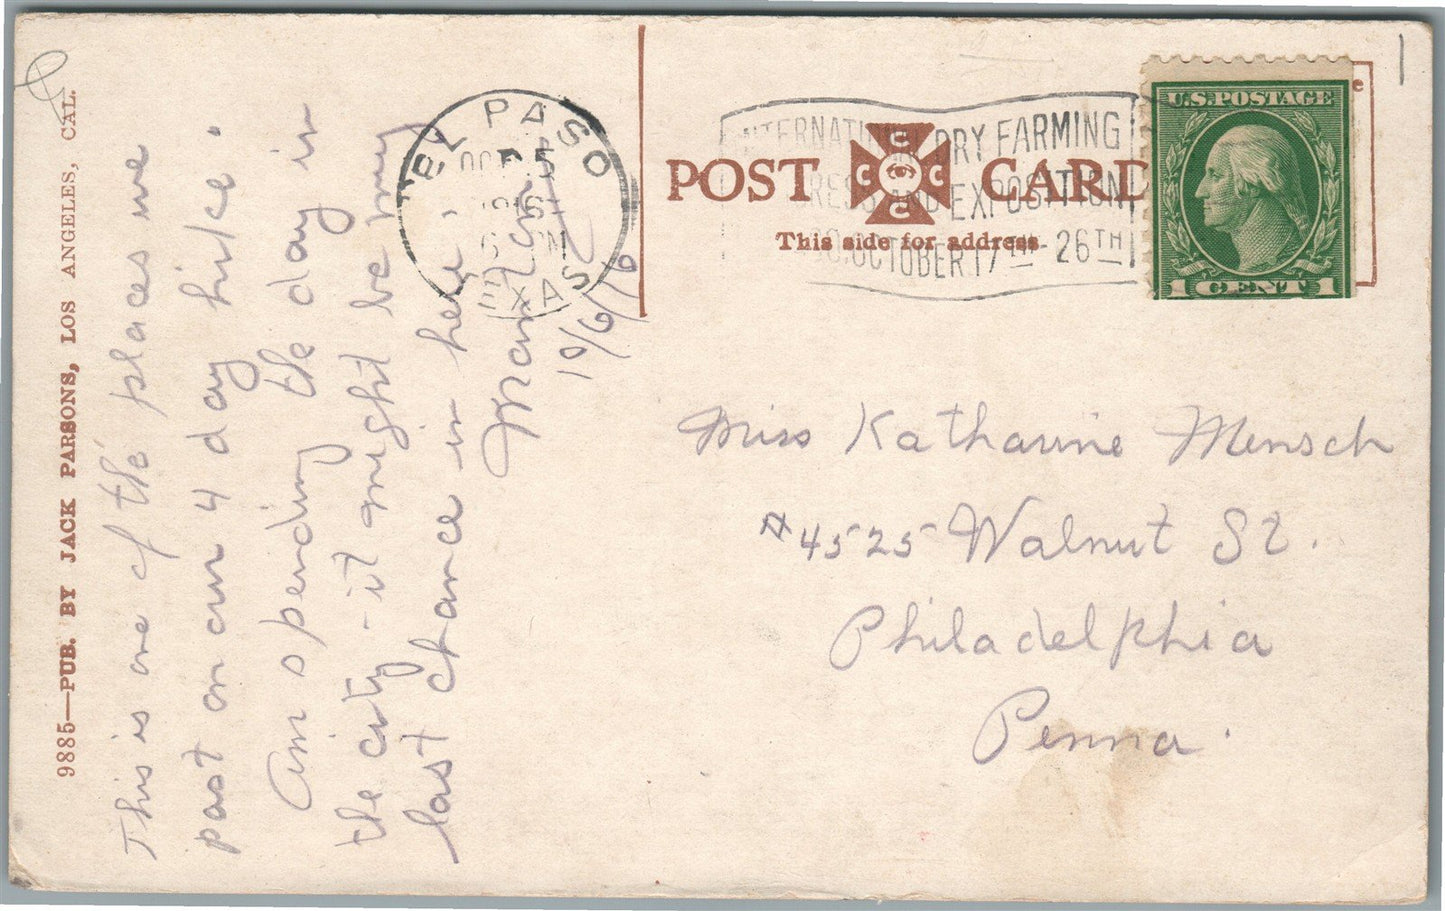 9885—PUB. BY JACK PARSONS, LOS ANGELES, CAL.
This is one of the places we
past on our 4 day hike.
Am spending the day in
the city - it might be my
last chance in here.
10/6/16
EL PASO
OCT 5
1916
6 PM
TEXAS
INTERNATIONAL DRY FARMING
CONGRESS AND EXPOSITION
OCTOBER 17TH - 26TH
POST CARD
C C C C
This side for address
U.S. POSTAGE
1 CENT 1
e
Miss Katharine Mensch
#4525 Walnut St.
Philadelphia
Penna.